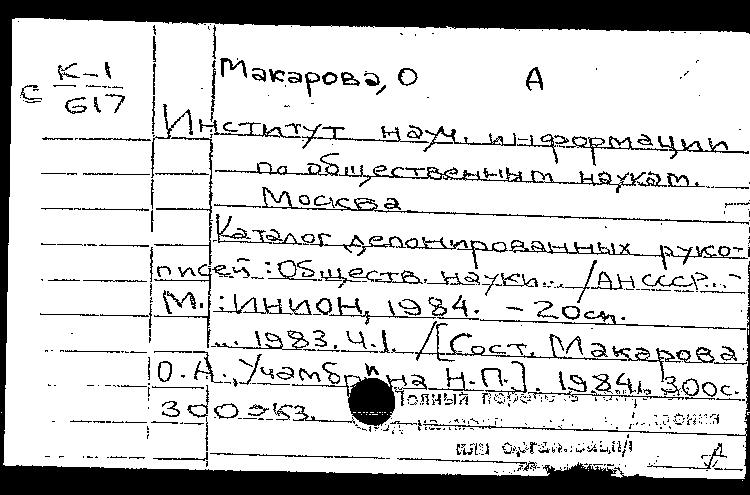 Макарова, О А
с К-1
617
Институт науч. информации
по общественным наукам.
Москва
Каталог депонированных руко-
писей : Обществ. науки... / АН СССР...-
М. : ИНИОН, 1984. - 20см.
... 1983. Ч.1. / [Сост. Макарова
О.А., Учамбрина Н.П.]. 1984. 300с.
300 экз.
Полный перечень
или организации